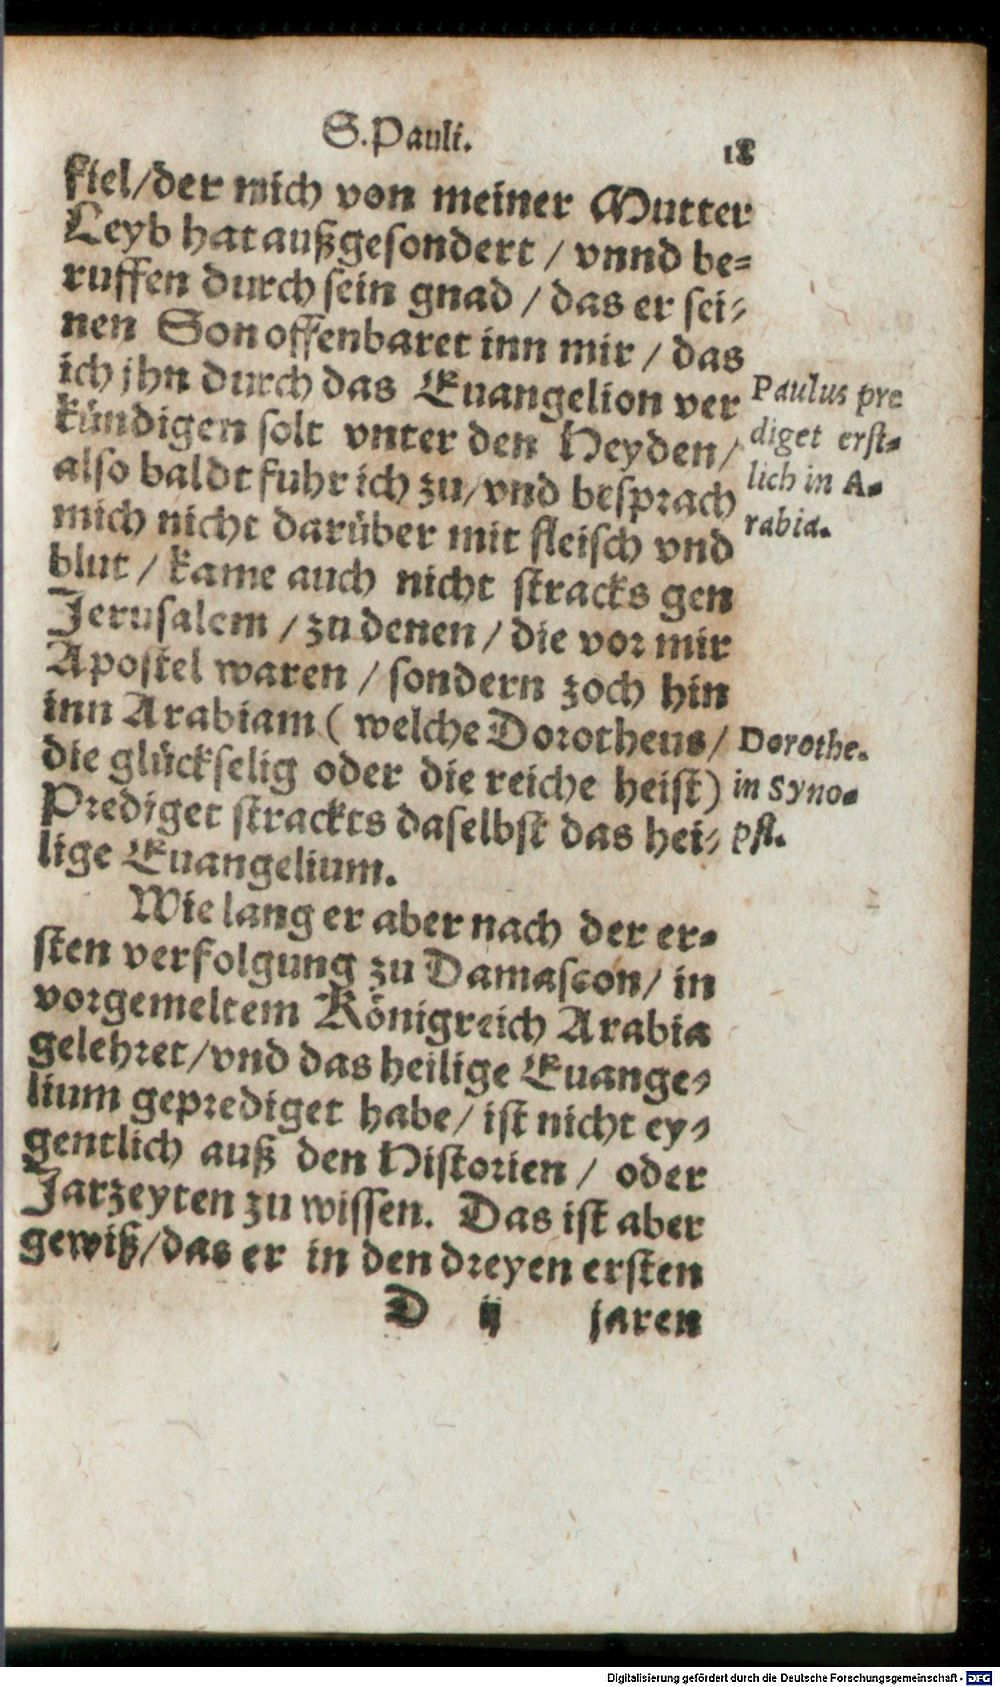 S. Pauli.
18
fiel/der mich von meiner Mutter
Leyb hat außgesondert / vnnd be=
ruffen durch sein gnad / das er sei=
nen Son offenbaret inn mir / das
ich jhn durch das Euangelion ver
kündigen solt vnter den Heyden/
also baldt fuhr ich zu/vnd besprach
mich nicht darüber mit fleisch vnd
blut / kame auch nicht stracks gen
Jerusalem / zu denen / die vor mir
Apostel waren / sondern zoch hin
inn Arabiam ( welche Dorotheus/
die glückselig oder die reiche heist)
Prediget strackts daselbst das hei=
lige Euangelium.
Paulus pre
diget erst=
lich in A=
rabia.
Dorothe.
in Syno=
psi.
Wie lang er aber nach der er=
sten verfolgung zu Damascon/ in
vorgemeltem Königreich Arabia
gelehret/vnd das heilige Euange=
lium geprediget habe/ ist nicht ey=
gentlich auß den Historien / oder
Jarzeyten zu wissen. Das ist aber
gewiß/das er in den dreyen ersten
D ij jaren
Digitalisierung gefördert durch die Deutsche Forschungsgemeinschaft - DFG